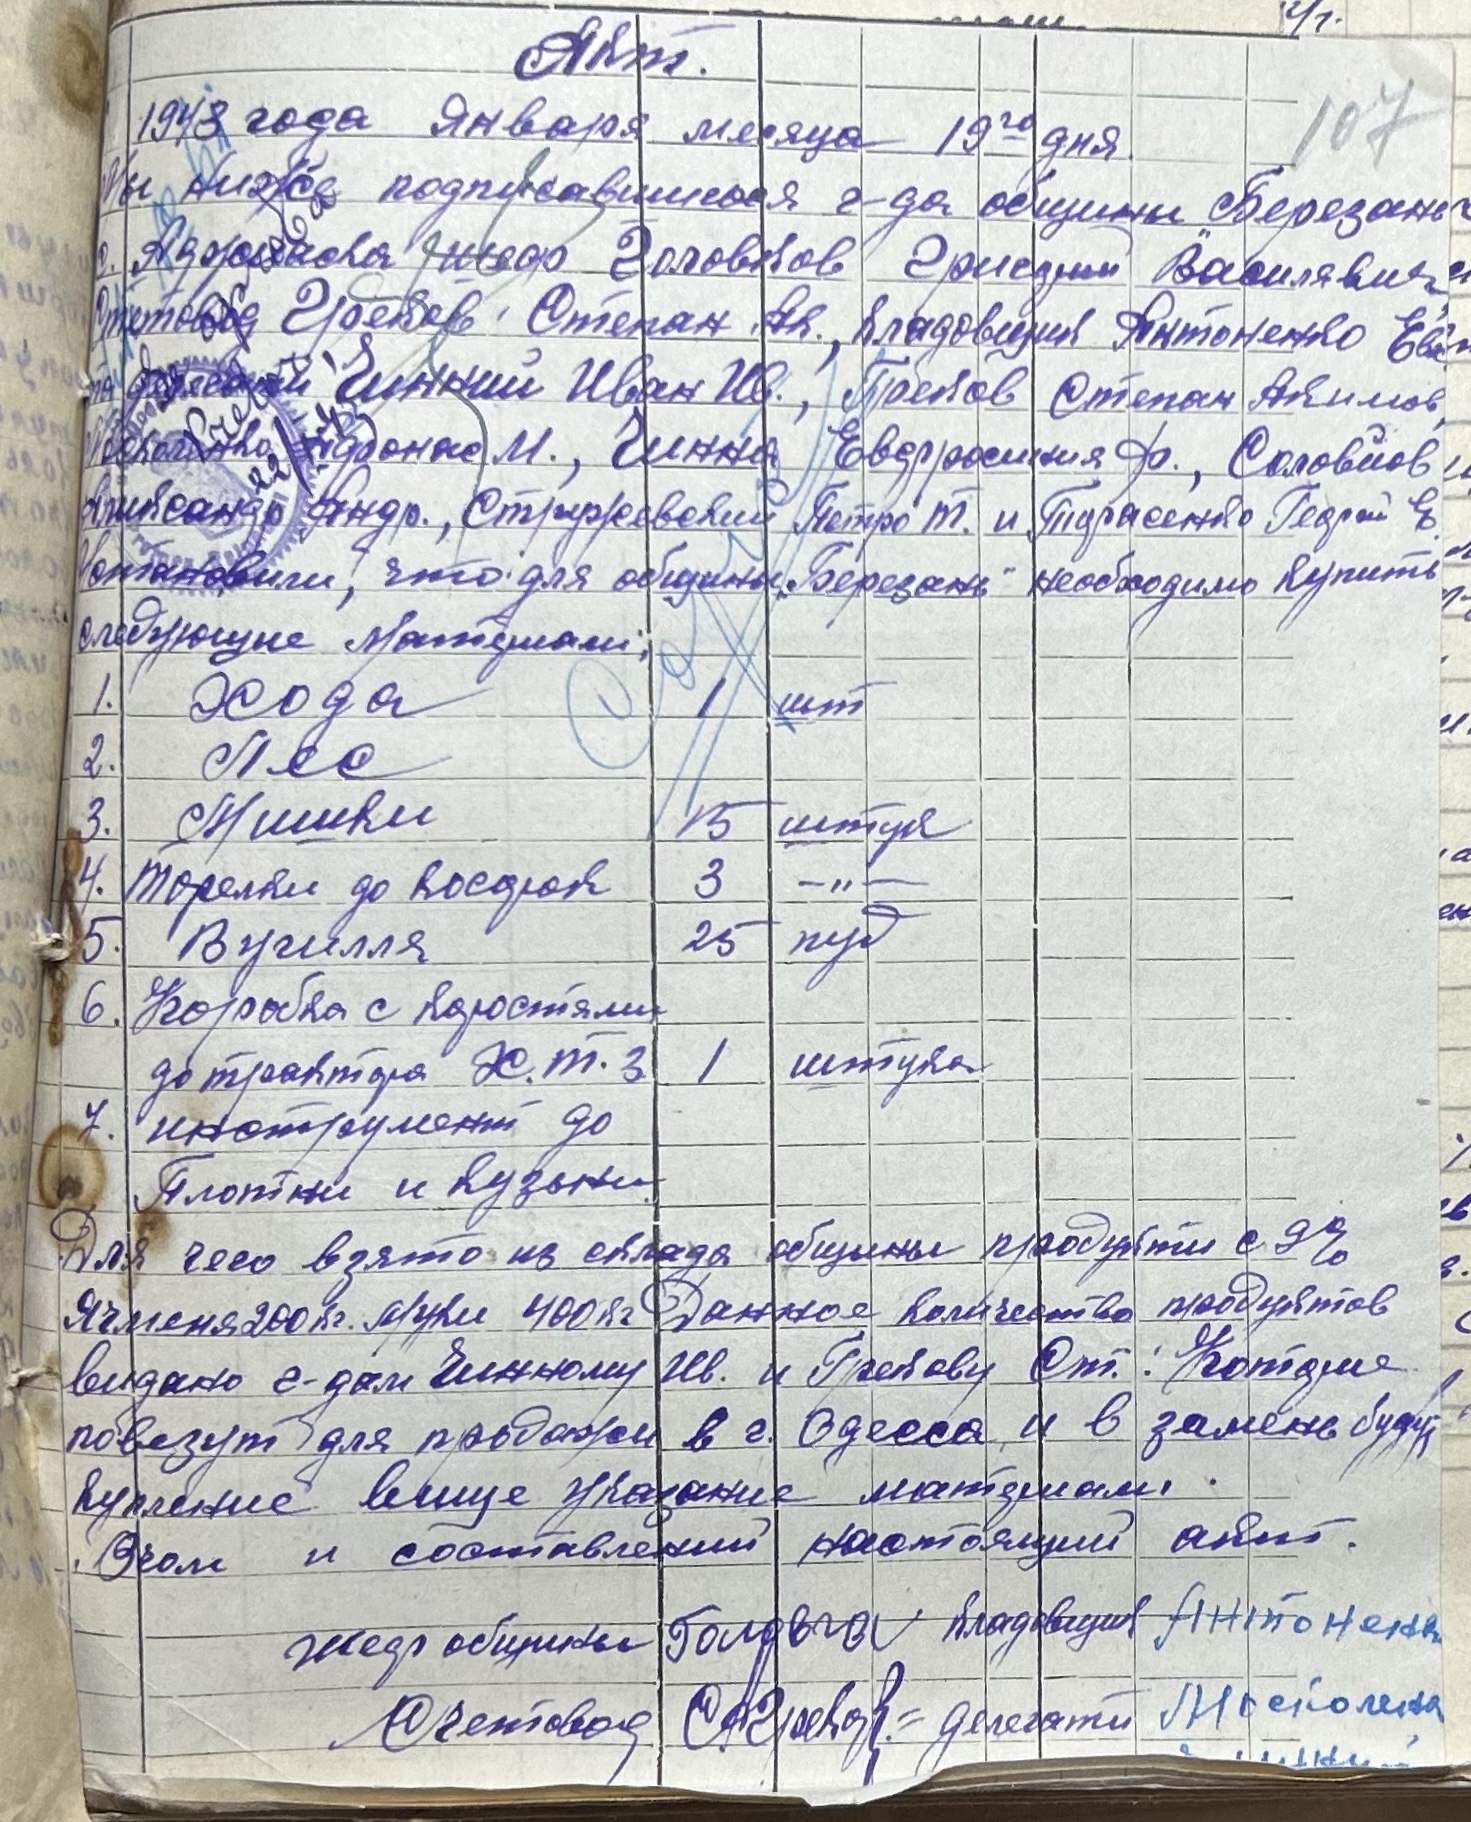 Акт.
107
1943 года Января месяца 19го дня.
Мы ниже подписавшиеся г-да общины "Березань"
с. шеф Головков Григорий Василявич
Грабов Степан Ак., кладовщик Антоненко Ев.
Чинний Иван Ив., Грабов Степан Акимов,
М., Чинна Евдросиния Ф., Соловйов
Александр Андр., Стружевский Петро Т. и Тарасенко Георгий Е.
Установили, что для общины "Березань" необходимо купить
следующие материали;
1. Хода 1 шт
2. Лес
3. Мишки 15 штук
4. Торелки до косарок 3 —"—
5. Вугилля 25 пуд
6. Коробка с
до трактора Х.Т.З 1 штука
7. инструмент до
Плотни и Кузьни.
Для чего взято из склада общины продукти с 9%
Ячменя 200 кг. Муки 400 кг Данное количество продуктов
видано г-дам Чинному Ив. и Грабову Ст.: Котрие
повезут для продажи в г. Одесса и в замень будут
купление више указание материали.
О чом и составлений настоящий акт.
Шеф общины кладовщик Антоненко
Счетовод делегати Москаленко